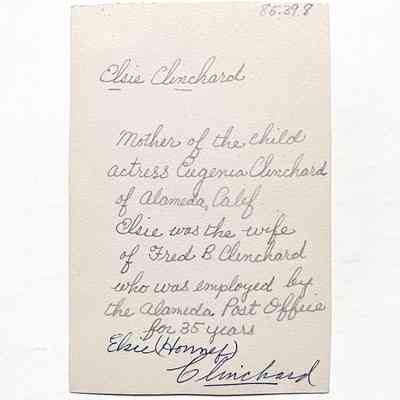 85.39.8
Elsie Clinchard
Mother of the child
actress Eugenia Clinchard
of Alameda, Calif
Elsie was the wife
of Fred B Clinchard
who was employed by
the Alameda Post Office
for 35 years
Elsie (Honnef)
Clinchard